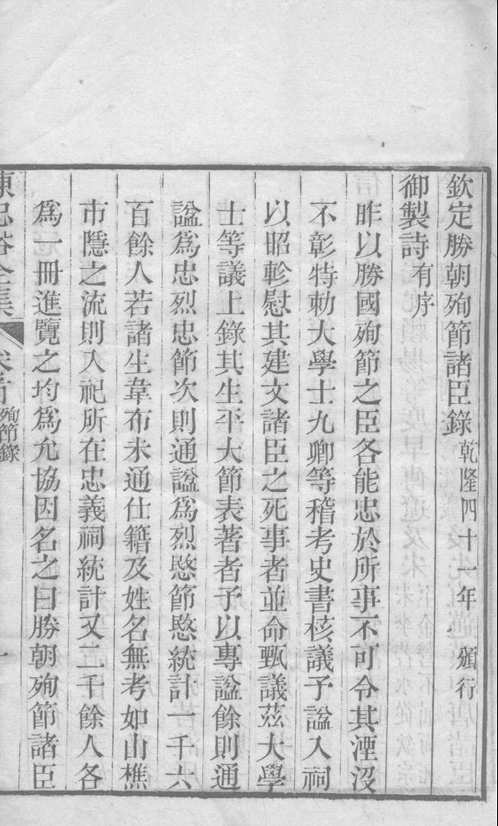 欽定勝朝殉節諸臣錄乾隆四十一年 頒行
御製詩有序
昨以勝國殉節之臣各能忠於所事不可令其湮沒
不彰特勅大學士九卿等稽考史書核議予諡入祠
以昭軫慰其建文諸臣之死事者並命甄議茲大學
士等議上錄其生平大節表著者予以專諡餘則通
諡爲忠烈忠節次則通諡爲烈愍節愍統計一千六
百餘人若諸生韋布未通仕籍及姓名無考如山樵
市隱之流則入祀所在忠義祠統計又二千餘人各
爲一冊進覽之均爲允協因名之曰勝朝殉節諸臣
陳忠裕全集 卷首 殉節錄 一